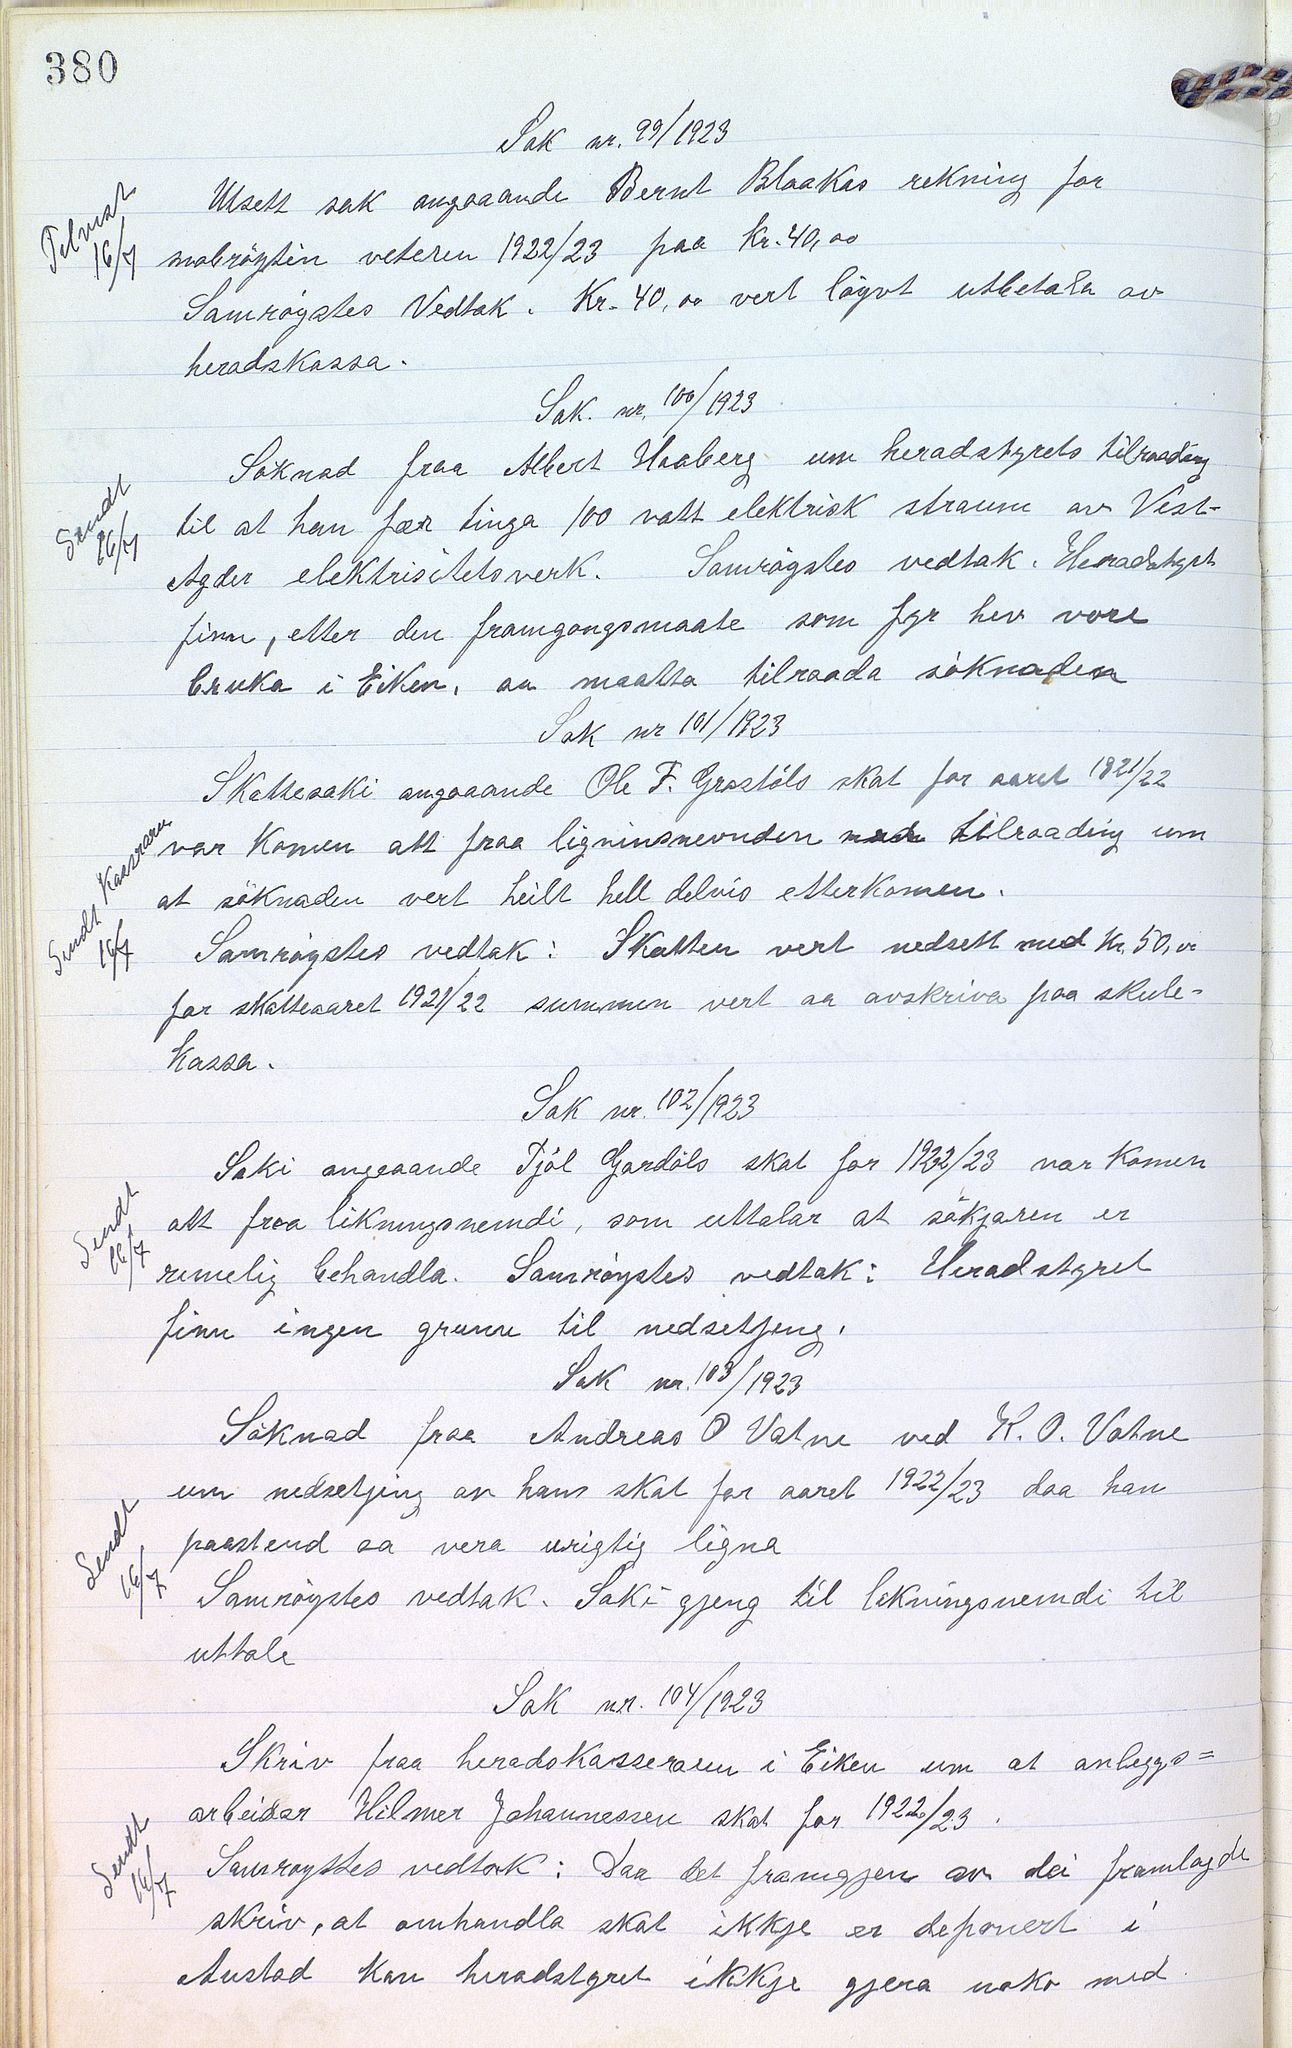 380
Sak nr. 99/1923
Utsett sak angaaande Bernt Blaakas rekning for
veteren 1922/23 paa kr. 40,00
Samrøgstes Vedtak. Kr. 40,00 vert løgvt utbetala av
heradskassa.
Tilvist
16/7
Sak. nr. 100/1923
Søknad fraa Albert Haaberg um heradstyrets tilraading
til at han fær tinga 100 vatt elektrisk straum av Vest-
Agder elektrisitetsverk. Samrøgstes vedtak. Heradstyret
finn, etter den framgongsmaate som fyr hev vore
bruka i Eiken, aa maatta tilraada søknaden
Sendt
16/7
Sak nr 101/1923
Skattesaki angaaande Ole F. Grostøls skat for aaret 1921/22
var komen att fraa ligninsnevnden med tilraading um
at søknaden vert heilt hell delvis etterkomen.
Samrøgstes vedtak: Skatten vert nedsett med kr. 50,00
for skatteaaret 1921/22 summen vert aa avskriva paa skule-
kassa.
Sendt Kasserar
16/7
Sak nr. 102/1923
Saki angaaande Tjøl Gardøls skat for 1922/23 var komen
att fraa likningsnemdi, som uttalar at søkjaren er
rimelig behandla. Samrøystes vedtak: Heradstyret
finn ingen grunn til nedsetjeng.
Sendt
16/7
Sak nr. 103/1923
Søknad fraa Andreas O Vatne ved K. O. Vatne
um nedsetjing av hans skat for aaret 1922/23 daa han
paastend aa vera urigtig ligna
Samrøystes vedtak. Saki gjeng til likningsnemdi til
uttale
Sendt
16/7
Sak nr. 104/1923
Skriv fraa heradskasseraren i Eiken um at anleggs=
arbeidar Hilmer Johannessen skat for 1922/23.
Samrøystes vedtak: Daa det framgjen av dei framlagde
skriv, at omhandla skat ikkje er deponert i
Austad kan heradstyret ikkje gjera noko med
Sendt
16/7